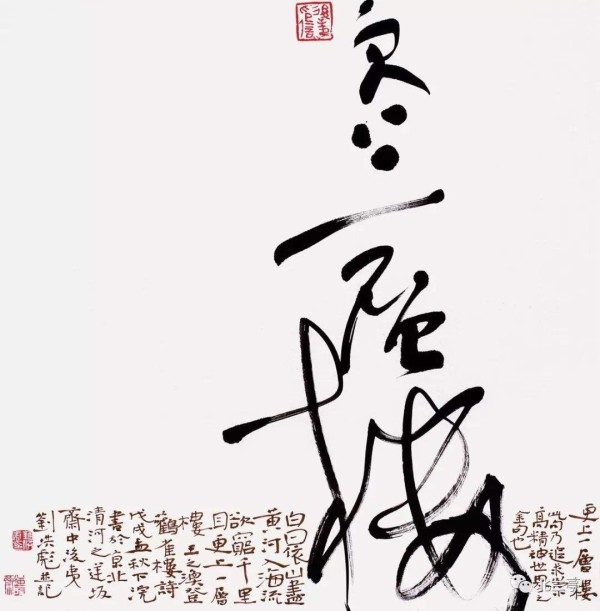 更上一層樓
更上一層樓
高精神世界之
金句也
白日依山盡
黃河入海流
欲窮千里
目更上一層
樓 王之渙登
鸛雀樓詩
戊戌孟秋下浣
書於京北
清河之逆坂
齋中後夷
劉洪彪并記
北兰亭